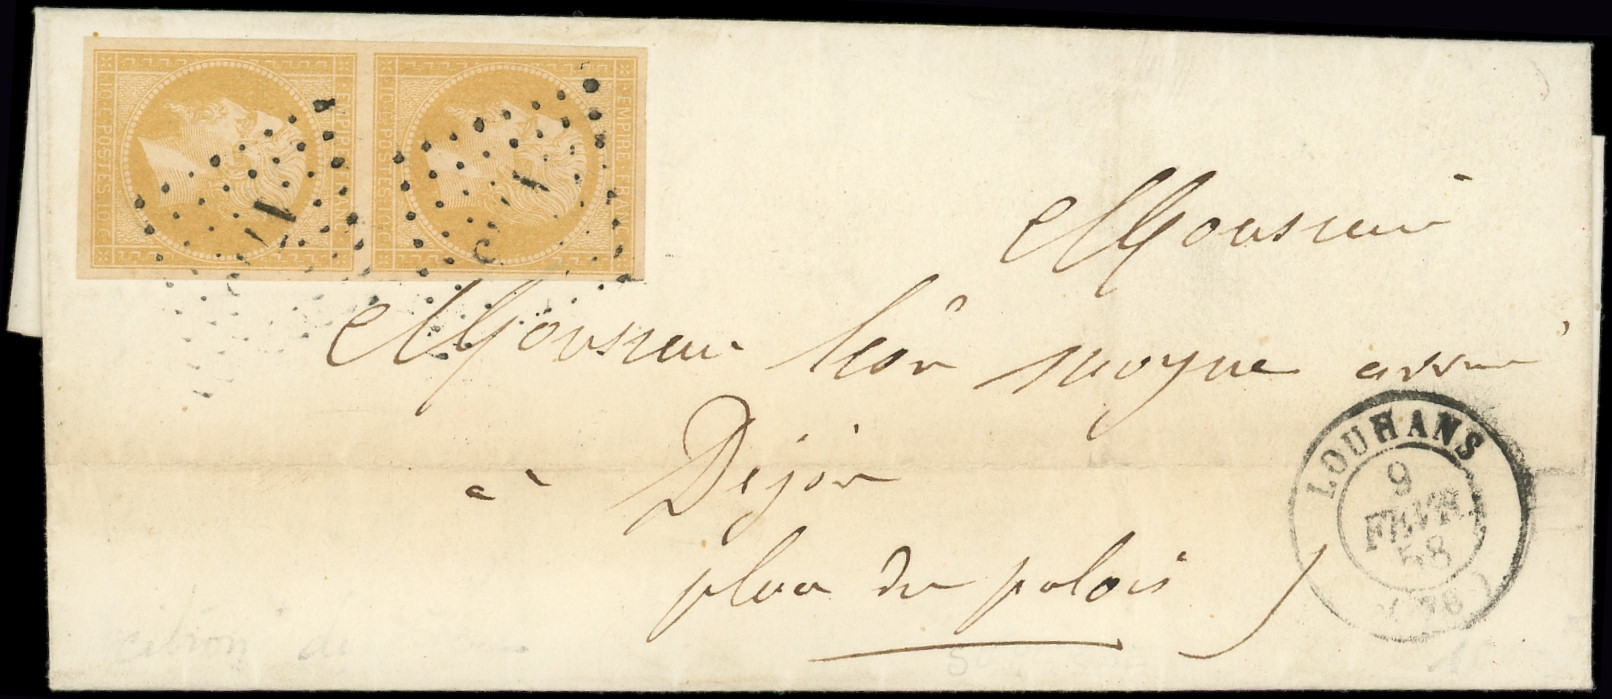 EMPIRE FRANC
10·C·POSTES·10·C
EMPIRE FRANC
10·C·POSTES·10·C
Monsieur
Monsieur Léon moyne
à Dijon
place du palais
LOUHANS
9
FEVR.
58